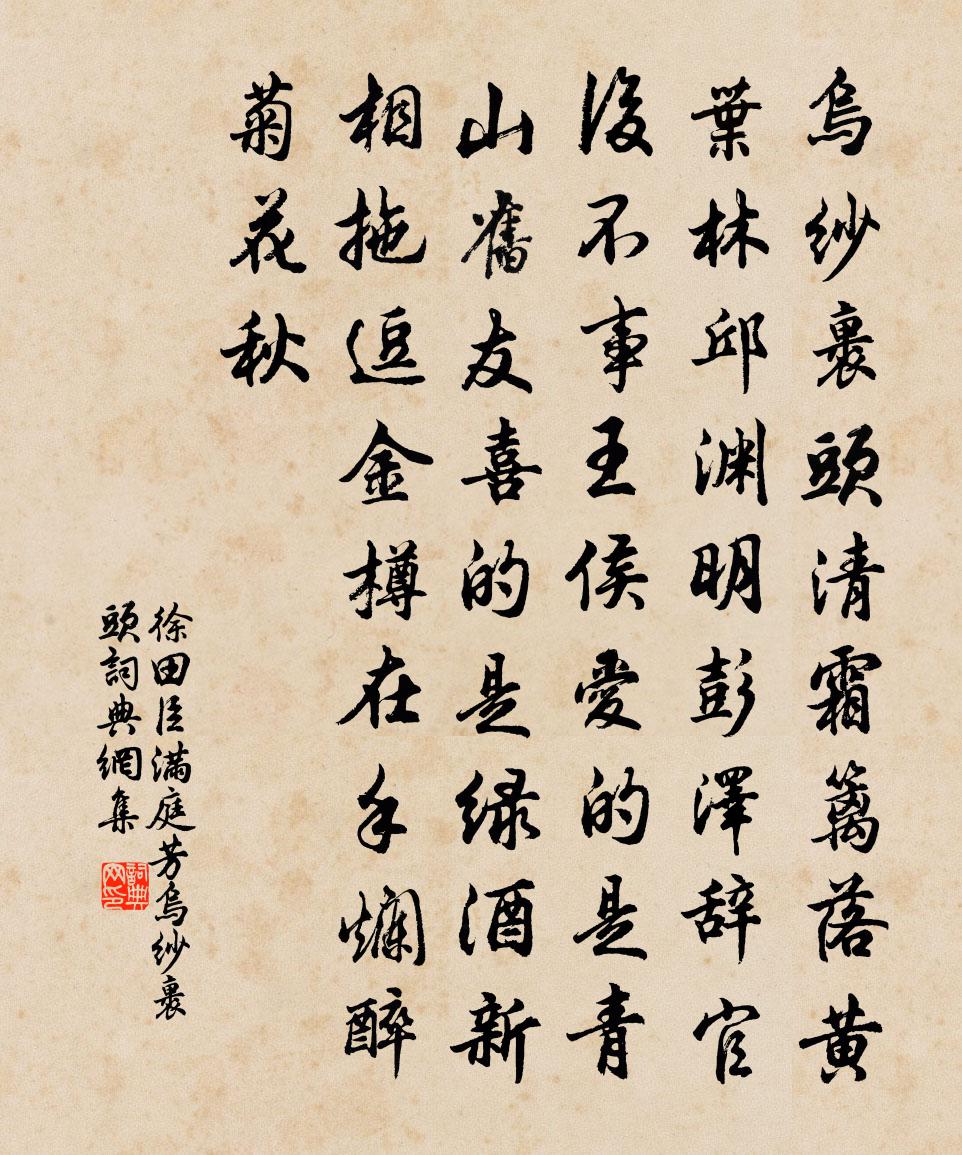 烏紗裹頭清霜籬落黄
葉林邱渊明彭澤辞官
後不事王侯愛的是青
山舊友喜的是绿酒新
相拖逗金樽在手爛醉
菊花秋
徐田臣满庭芳烏紗裹
頭詞典網集
詞典网印